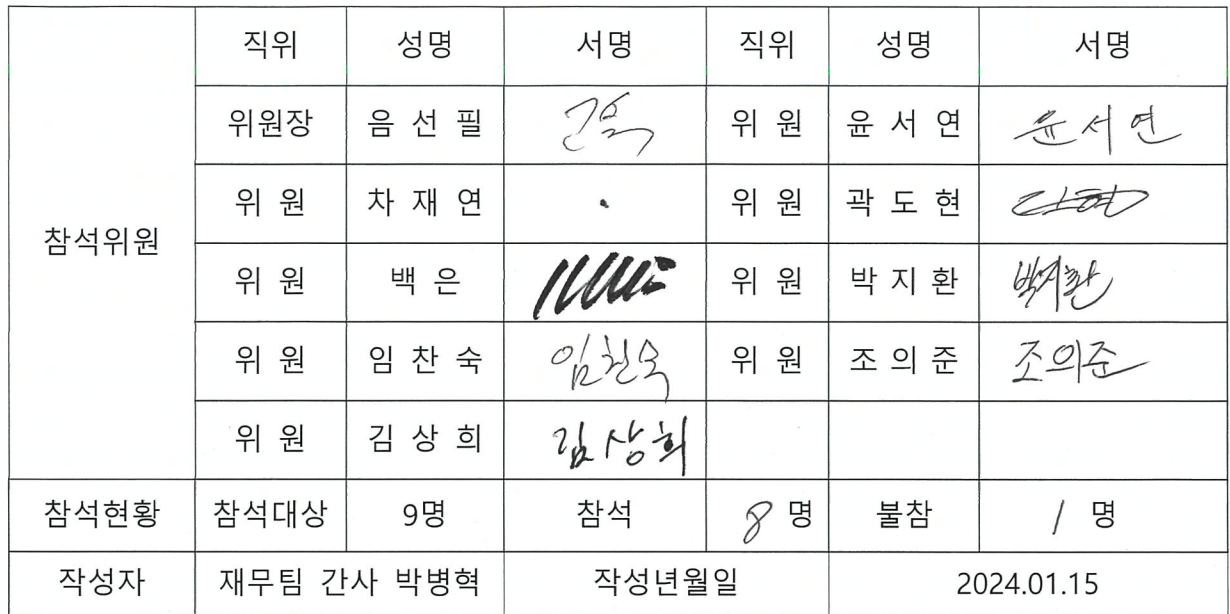 직위 성명 서명 직위 성명 서명
위원장 음 선 필 위 원 윤 서 연 윤서연
위 원 차 재 연 위 원 곽 도 현
참석위원
위 원 백 은 위 원 박 지 환 박지환
위 원 임 찬 숙 임찬숙 위 원 조 의 준 조의준
위 원 김 상 희 김상희
참석현황 참석대상 9명 참석 8 명 불참 1 명
작성자 재무팀 간사 박병혁 작성년월일 2024.01.15